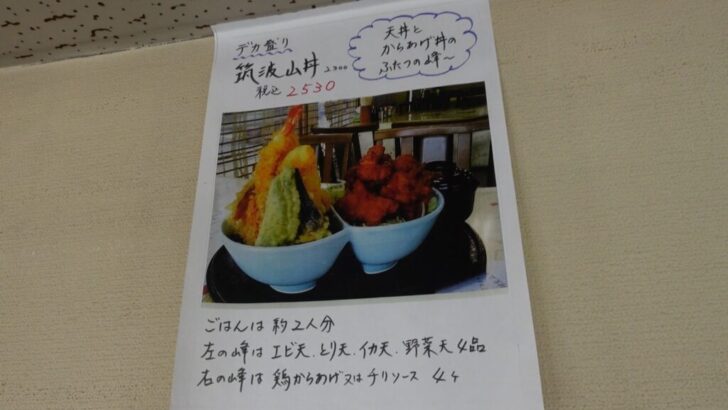 デカ盛り
筑波山丼 2300
税込 2530
天丼と
からあげ丼の
ふたつの峰〜
ごはんは 約2人分
左の峰は エビ天、とり天、イカ天、野菜天4品
右の峰は 鶏からあげ又はチリソース 4ヶ